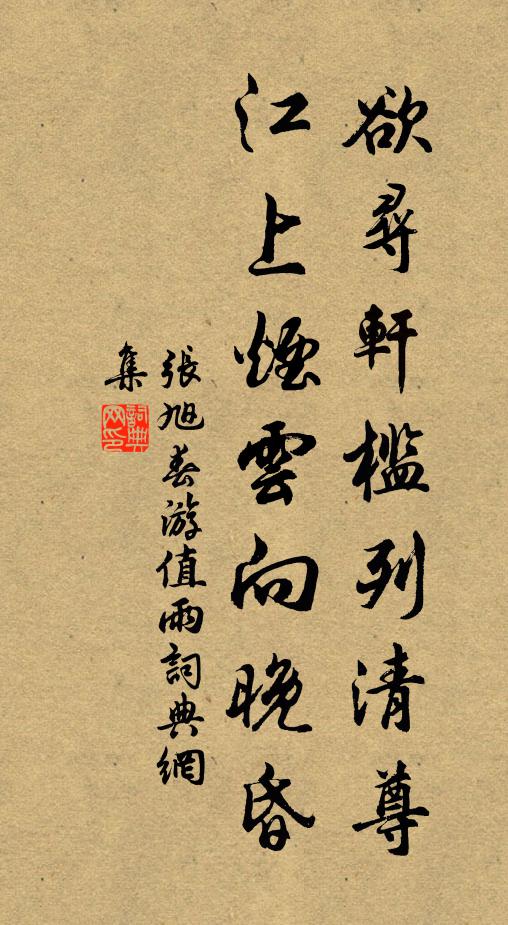 欲尋軒檻列清尊
江上煙雲向晚昏
張旭春游值雨詞典網
集
詞典網印